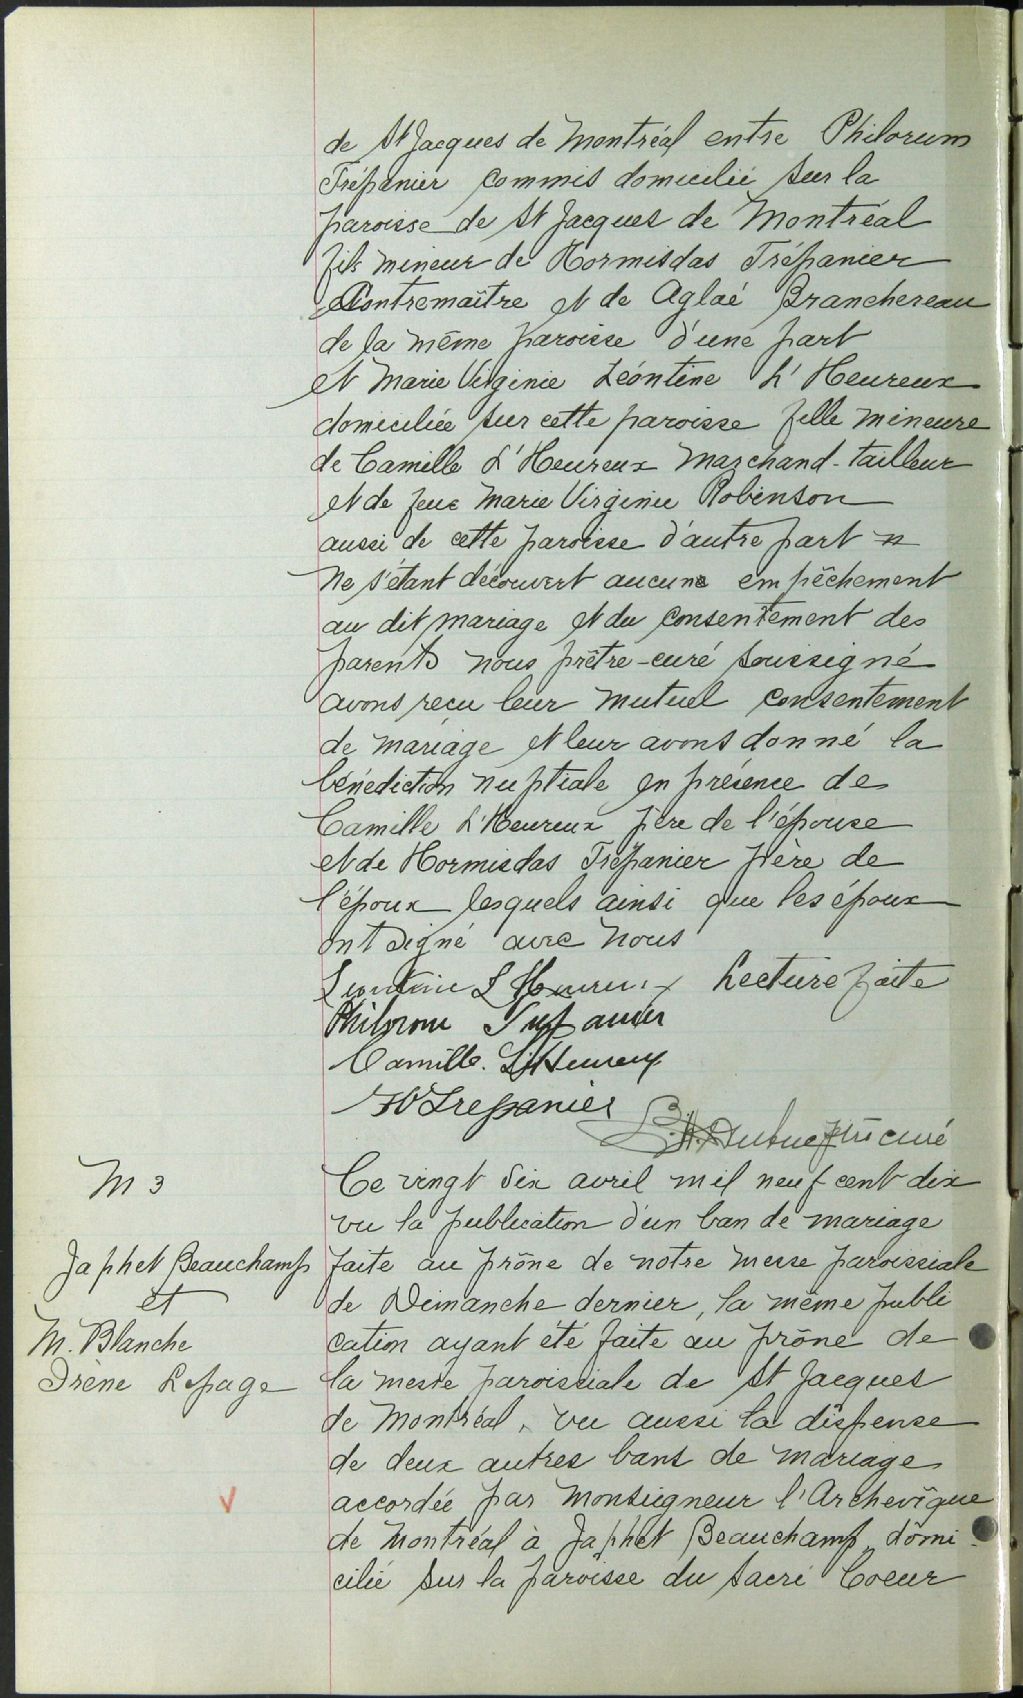 de St Jacques de Montréal entre Philorum
Trépanier commis domicilié sur la
paroisse de St Jacques de Montréal
fils mineur de Hormisdas Trépanier
Contremaître et de Aglaé Branchereau
de la même paroisse d'une part
et Marie Virginie Léontine L'Heureux
domiciliée sur cette paroisse fille mineure
de Camille L'Heureux Marchand-tailleur
et de feue Marie Virginie Robinson
aussi de cette paroisse d'autre part
ne s'étant découvert aucune empêchement
au dit mariage et du consentement des
parents nous prêtre-curé soussigné
avons reçu leur mutuel consentement
de mariage et leur avons donné la
bénédiction nuptiale en présence de
Camille L'Heureux père de l'épouse
et de Hormisdas Trépanier père de
l'époux lesquels ainsi que les époux
ont signé avec nous
Leontine L'Heureux Lecture faite
Philorom Trépanier
Camille L'Heureux
H Trepanier
curé
M 3
Japhet Beauchamp
et
M. Blanche
Irène Lepage
Ce vingt six avril mil neuf cent dix
vu la publication d'un ban de mariage
faite au prône de notre messe paroissiale
de Dimanche dernier, la même publi
cation ayant été faite au prône de
la messe paroissiale de St Jacques
de Montréal, vu aussi la dispense
de deux autres bans de mariage
accordée par Monseigneur l'Archevêque
de Montréal à Japhet Beauchamp, domi
cilié sur la paroisse du Sacré Coeur